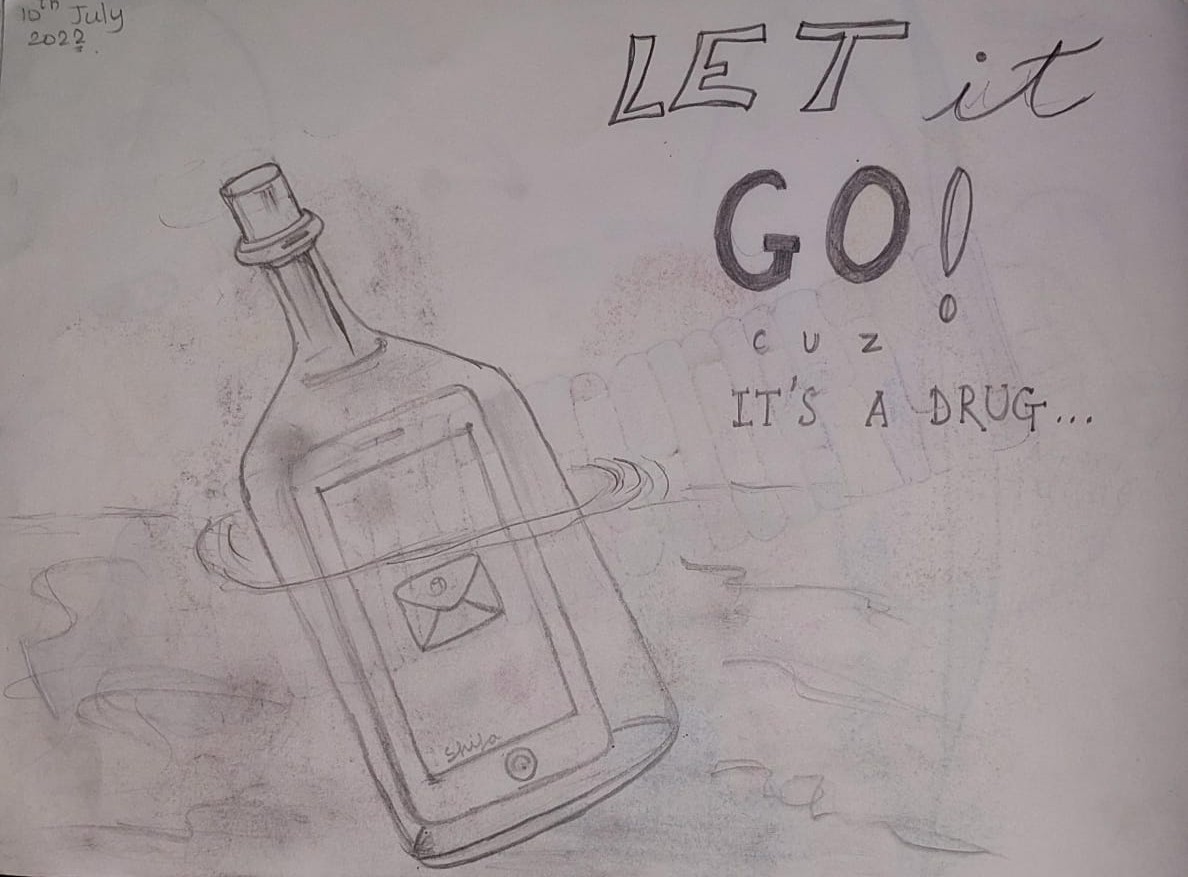 10th July
2022.
LET it
GO!
CUZ
IT'S A DRUG...
Shifa